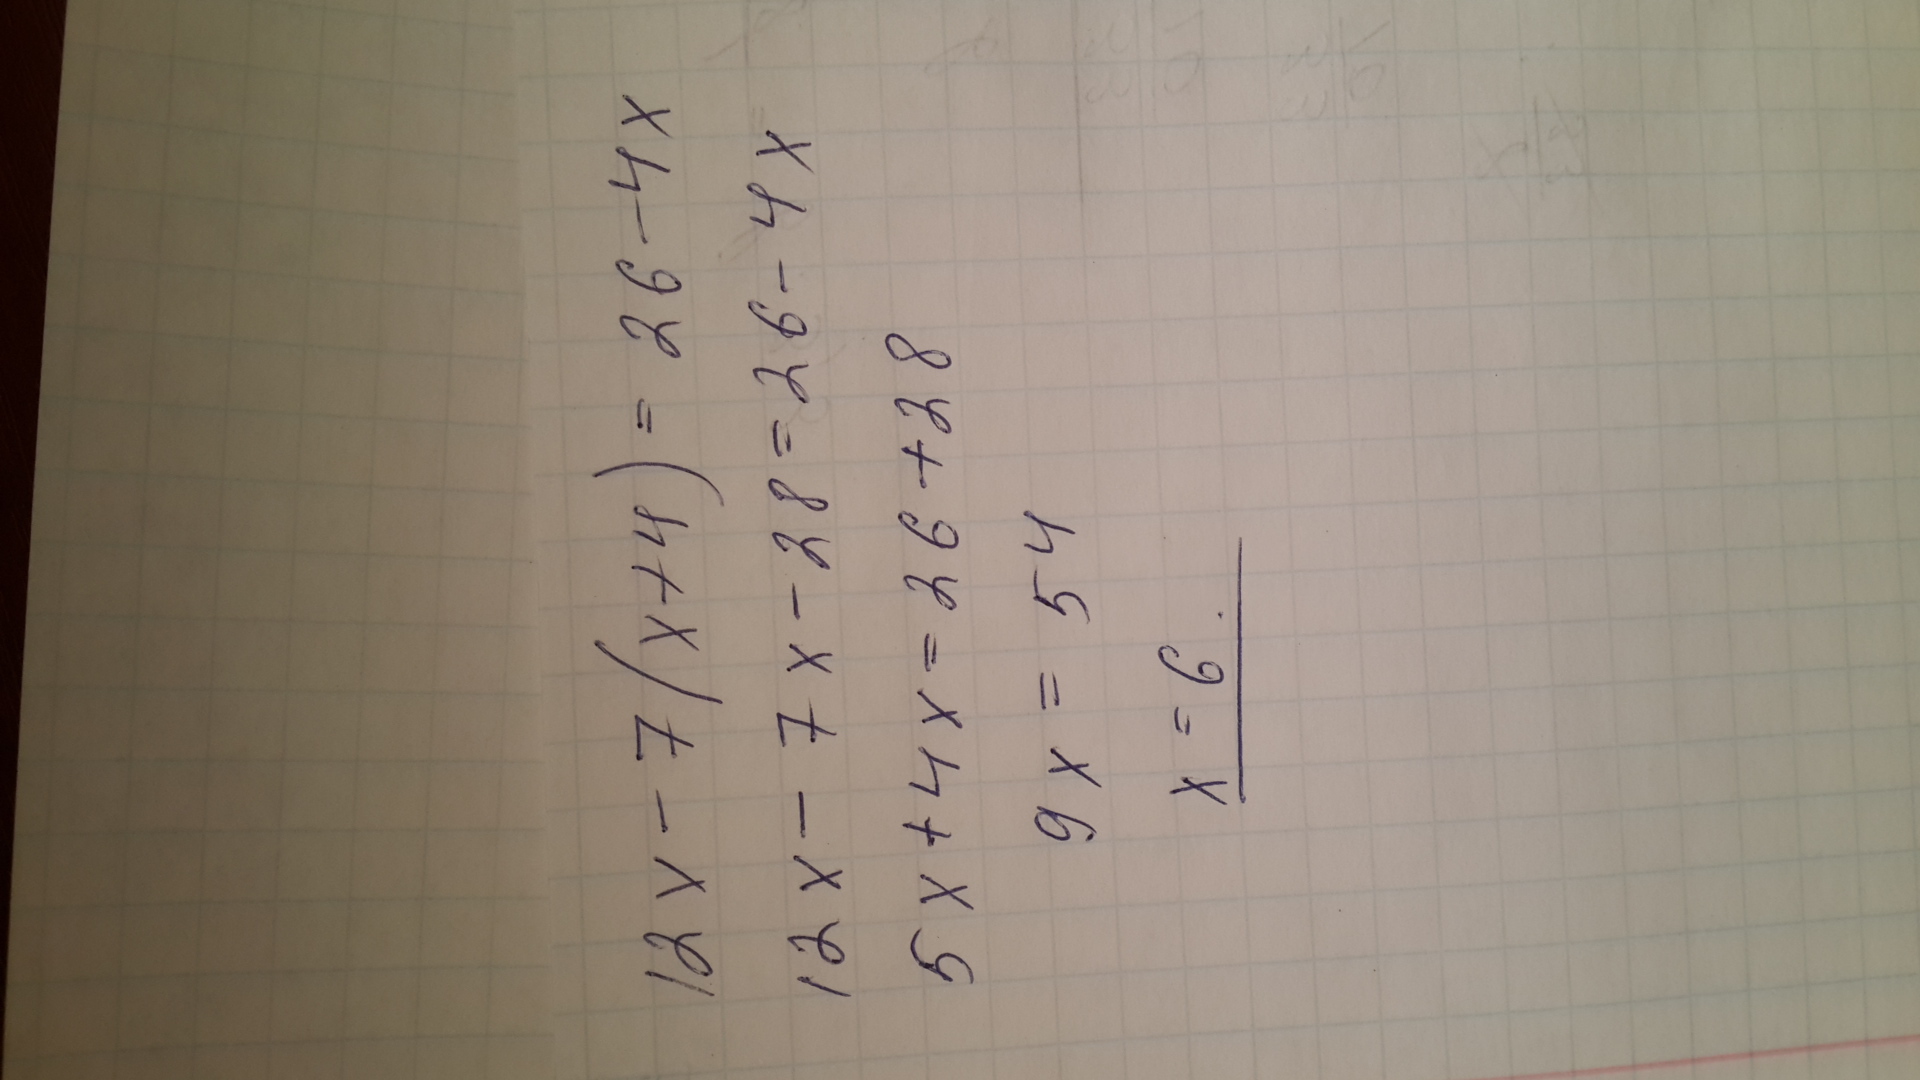 12x - 7(x+4) = 26-4x
12x - 7x - 28 = 26 - 4x
5x + 4x = 26 + 28
9x = 54
x = 6.